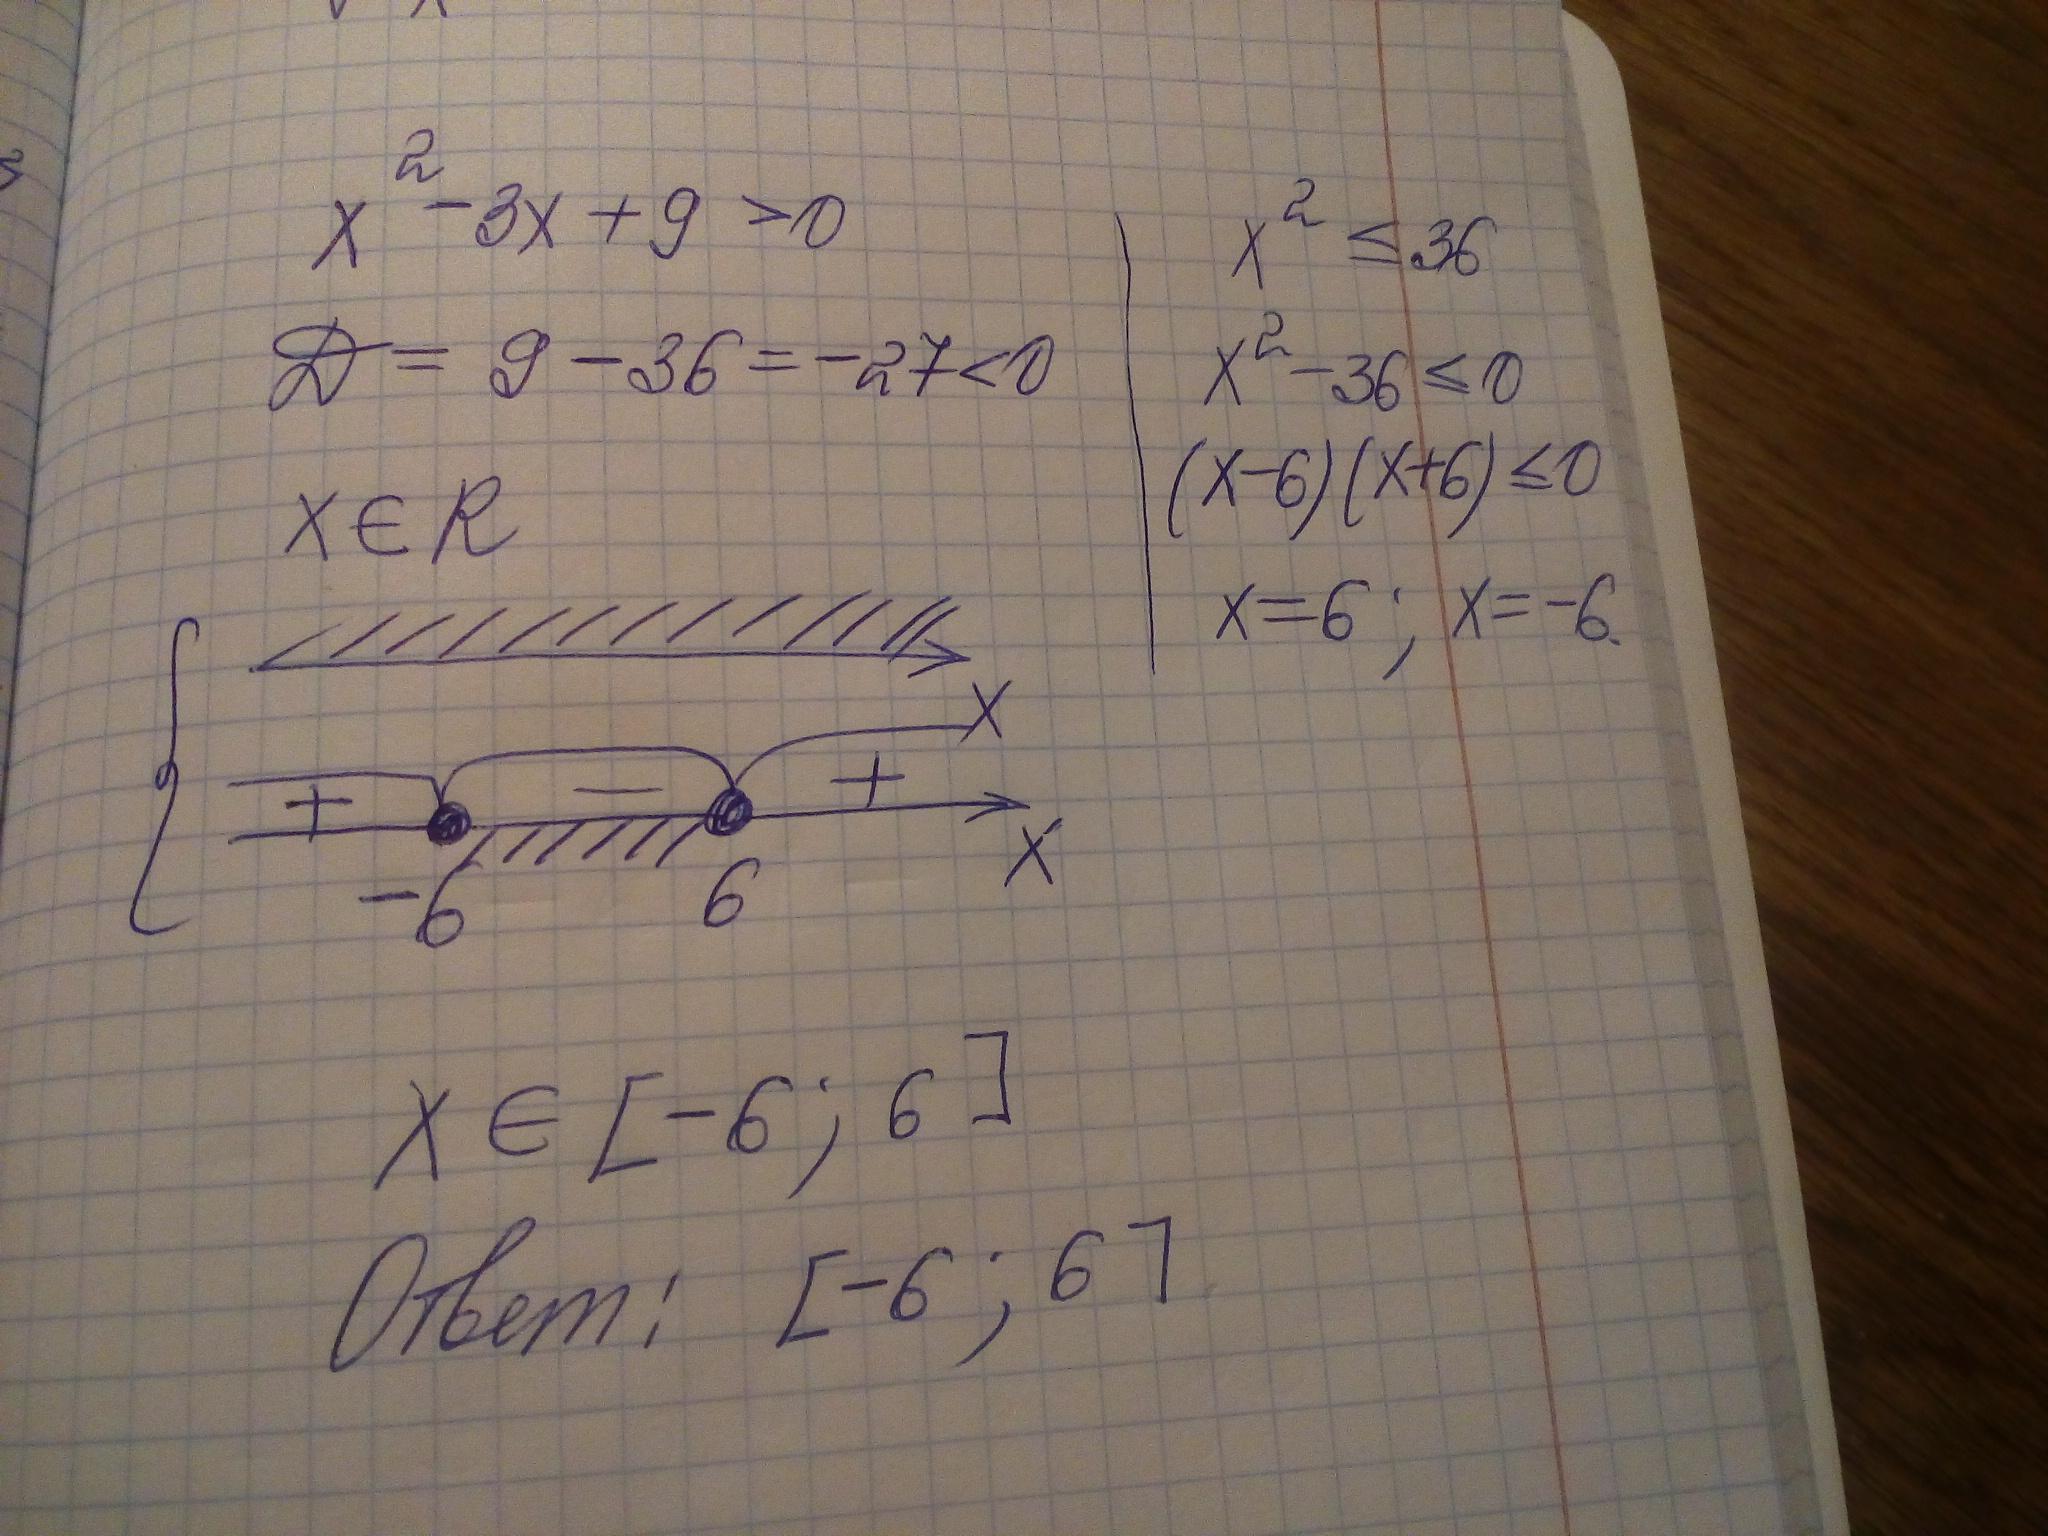 x² - 3x + 9 > 0
D = 9 - 36 = -27 < 0
x ∈ R
x² ≤ 36
x² - 36 ≤ 0
(x-6)(x+6) ≤ 0
x = 6; x = -6
x
+ − +
-6 6 x
x ∈ [-6; 6]
Ответ: [-6; 6]